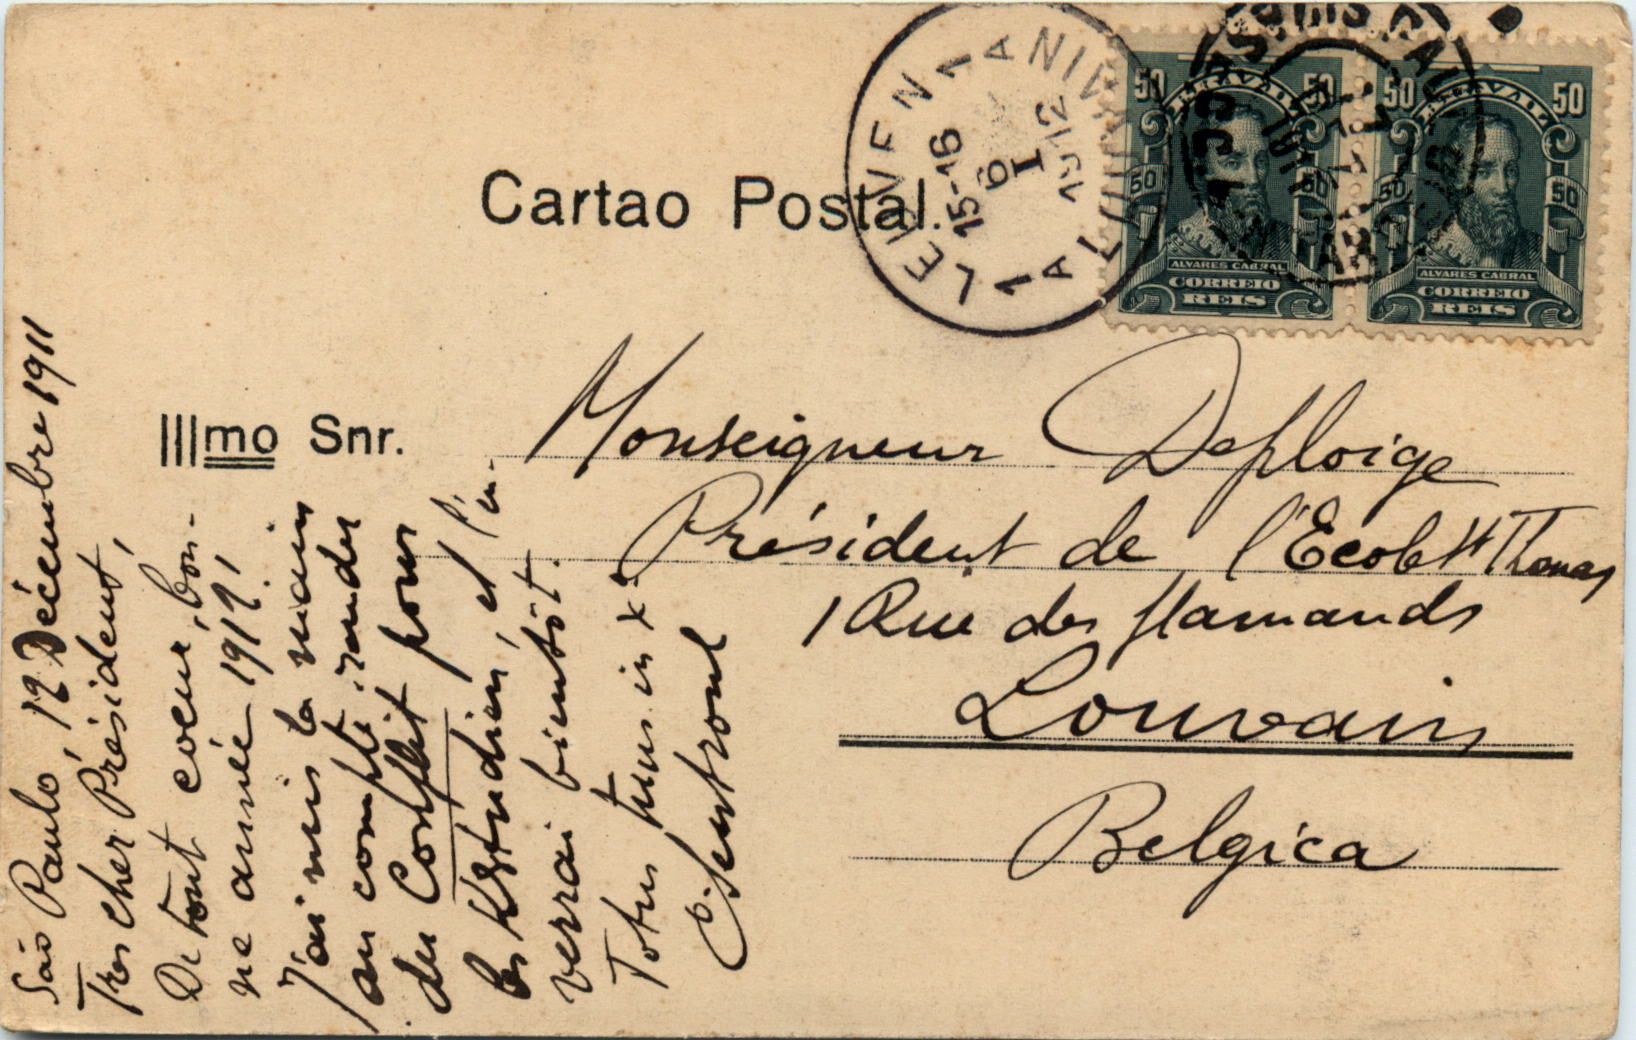 Cartao Postal.
LEUVEN 1A
15-16
6
I
1912
LOUVAIN 1A
50 50
ALVARES CABRAL
CORREIO
REIS
50 50
ALVARES CABRAL
CORREIO
REIS
Illmo Snr. Monseigneur Deploige
Président de l'Ecole St Thomas
1 Rue des flamands
Louvain
Belgica
São Paulo, 12 Décembre 1911
Tres cher Président,
De tout coeur, bon-
ne année 1912!
J'ai mis la main
au compte-rendu
du Conflit pour
les Kstudien, et l'en-
verrai bientôt.
Totus tuus in X°
C. Sentroul